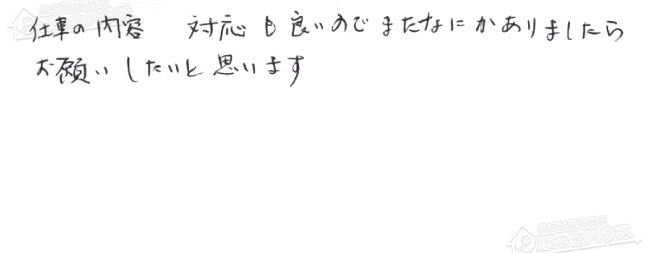 仕事の内容 対応も良いのでまたなにかありましたら
お願いしたいと思います